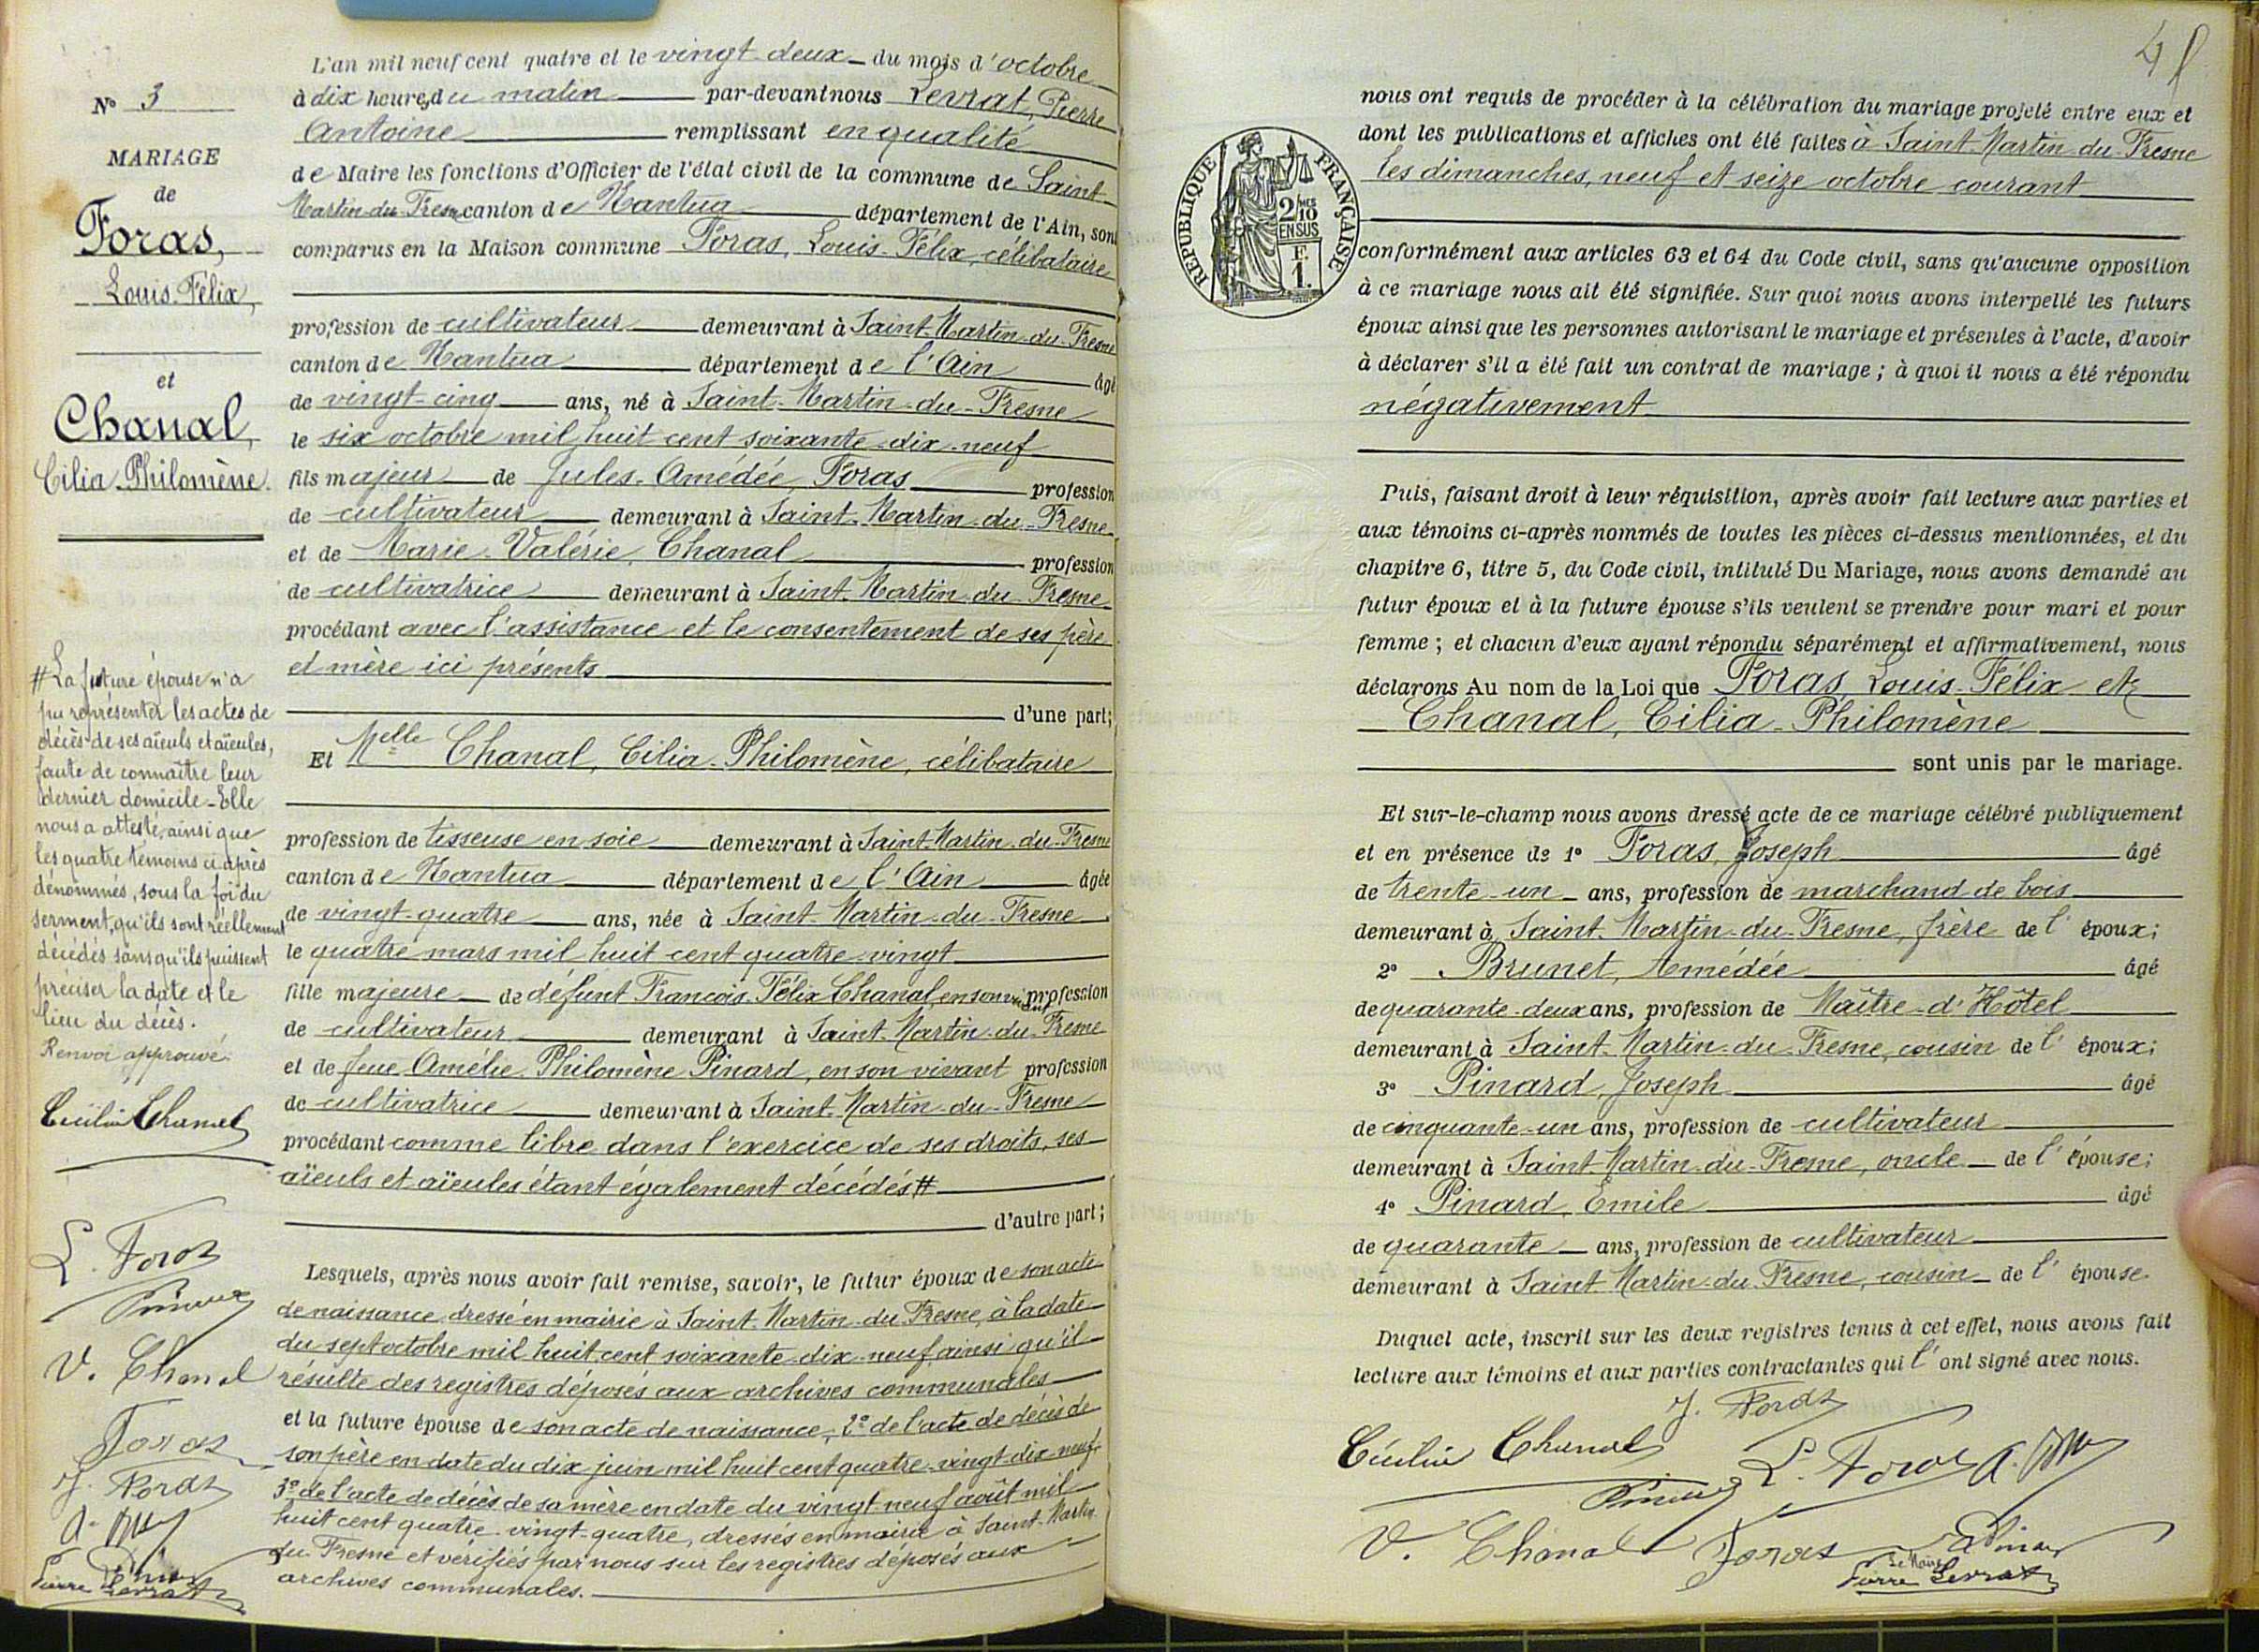 N° 3
MARIAGE
de
Foras,
Louis-Félix,
et
Chanal,
Cilia-Philomène.
# La future épouse n'a
pu représenter les actes de
décès de ses aïeuls et aïeules,
faute de connaître leur
dernier domicile - Elle
nous a attesté, ainsi que
les quatre témoins ci-après
dénommés, sous la foi du
serment, qu'ils sont réellement
décédés sans qu'ils puissent
préciser la date et le
lieu du décès.
Renvoi approuvé.
Cécilia Chanal
L. Foras
V. Chanal
Foras
J. Foras
Pierre Levrat
L'an mil neuf cent quatre et le vingt-deux du mois d'octobre
à dix heures du matin par-devant nous Levrat, Pierre
Antoine remplissant en qualité
de Maire les fonctions d'Officier de l'état civil de la commune de Saint-
Martin-du-Fresne canton de Nantua département de l'Ain, sont
comparus en la Maison commune Foras, Louis-Félix, célibataire
profession de cultivateur demeurant à Saint-Martin-du-Fresne
canton de Nantua département de l'Ain âgé
de vingt-cinq ans, né à Saint-Martin-du-Fresne
le six octobre mil huit cent soixante-dix-neuf
fils majeur de Jules-Amédée Foras profession
de cultivateur demeurant à Saint-Martin-du-Fresne
et de Marie-Valérie Chanal profession
de cultivatrice demeurant à Saint-Martin-du-Fresne
procédant avec l'assistance et le consentement de ses père
et mère ici présents
d'une part;
Et Melle Chanal, Cilia-Philomène, célibataire
profession de tisseuse en soie demeurant à Saint-Martin-du-Fresne
canton de Nantua département de l'Ain âgée
de vingt-quatre ans, née à Saint-Martin-du-Fresne
le quatre mars mil huit cent quatre-vingt
fille majeure de défunt François-Félix Chanal, en son vivant profession
de cultivateur demeurant à Saint-Martin-du-Fresne
et de feue Amélie-Philomène Pinard, en son vivant profession
de cultivatrice demeurant à Saint-Martin-du-Fresne
procédant comme libre dans l'exercice de ses droits, ses
aïeuls et aïeules étant également décédés #
d'autre part;
Lesquels, après nous avoir fait remise, savoir, le futur époux de son acte
de naissance dressé en mairie à Saint-Martin-du-Fresne, à la date
du sept octobre mil huit cent soixante-dix-neuf ainsi qu'il
résulte des registres déposés aux archives communales
et la future épouse de son acte de naissance, 2° de l'acte de décès de
son père en date du dix juin mil huit cent quatre-vingt-dix-neuf,
3° de l'acte de décès de sa mère en date du vingt-neuf août mil
huit cent quatre-vingt-quatre, dressés en mairie à Saint-Martin
du-Fresne et vérifiés par nous sur les registres déposés aux
archives communales.
nous ont requis de procéder à la célébration du mariage projeté entre eux et
dont les publications et affiches ont été faites à Saint-Martin-du-Fresne
les dimanches, neuf et seize octobre courant
REPUBLIQUE FRANÇAISE
2/10 MES
EN SUS
F.
1.
conformément aux articles 63 et 64 du Code civil, sans qu'aucune opposition
à ce mariage nous ait été signifiée. Sur quoi nous avons interpellé les futurs
époux ainsi que les personnes autorisant le mariage et présentes à l'acte, d'avoir
à déclarer s'il a été fait un contrat de mariage ; à quoi il nous a été répondu
négativement
Puis, faisant droit à leur réquisition, après avoir fait lecture aux parties et
aux témoins ci-après nommés de toutes les pièces ci-dessus mentionnées, et du
chapitre 6, titre 5, du Code civil, intitulé Du Mariage, nous avons demandé au
futur époux et à la future épouse s'ils veulent se prendre pour mari et pour
femme ; et chacun d'eux ayant répondu séparément et affirmativement, nous
déclarons Au nom de la Loi que Foras, Louis-Félix et
Chanal, Cilia-Philomène
sont unis par le mariage.
Et sur-le-champ nous avons dressé acte de ce mariage célébré publiquement
et en présence de 1° Foras, Joseph âgé
de trente-un ans, profession de marchand de bois
demeurant à Saint-Martin-du-Fresne, frère de l'époux;
2° Brunet, Amédée âgé
de quarante-deux ans, profession de Maître-d'Hôtel
demeurant à Saint-Martin-du-Fresne, cousin de l'époux;
3° Pinard, Joseph âgé
de cinquante-un ans, profession de cultivateur
demeurant à Saint-Martin-du-Fresne, oncle de l'épouse;
4° Pinard, Emile âgé
de quarante ans, profession de cultivateur
demeurant à Saint-Martin-du-Fresne, cousin de l'épouse
Duquel acte, inscrit sur les deux registres tenus à cet effet, nous avons fait
lecture aux témoins et aux parties contractantes qui l'ont signé avec nous.
J. Foras
Cécilia Chanal L. Foras
V. Chanal Foras
Le Maire
Pierre Levrat